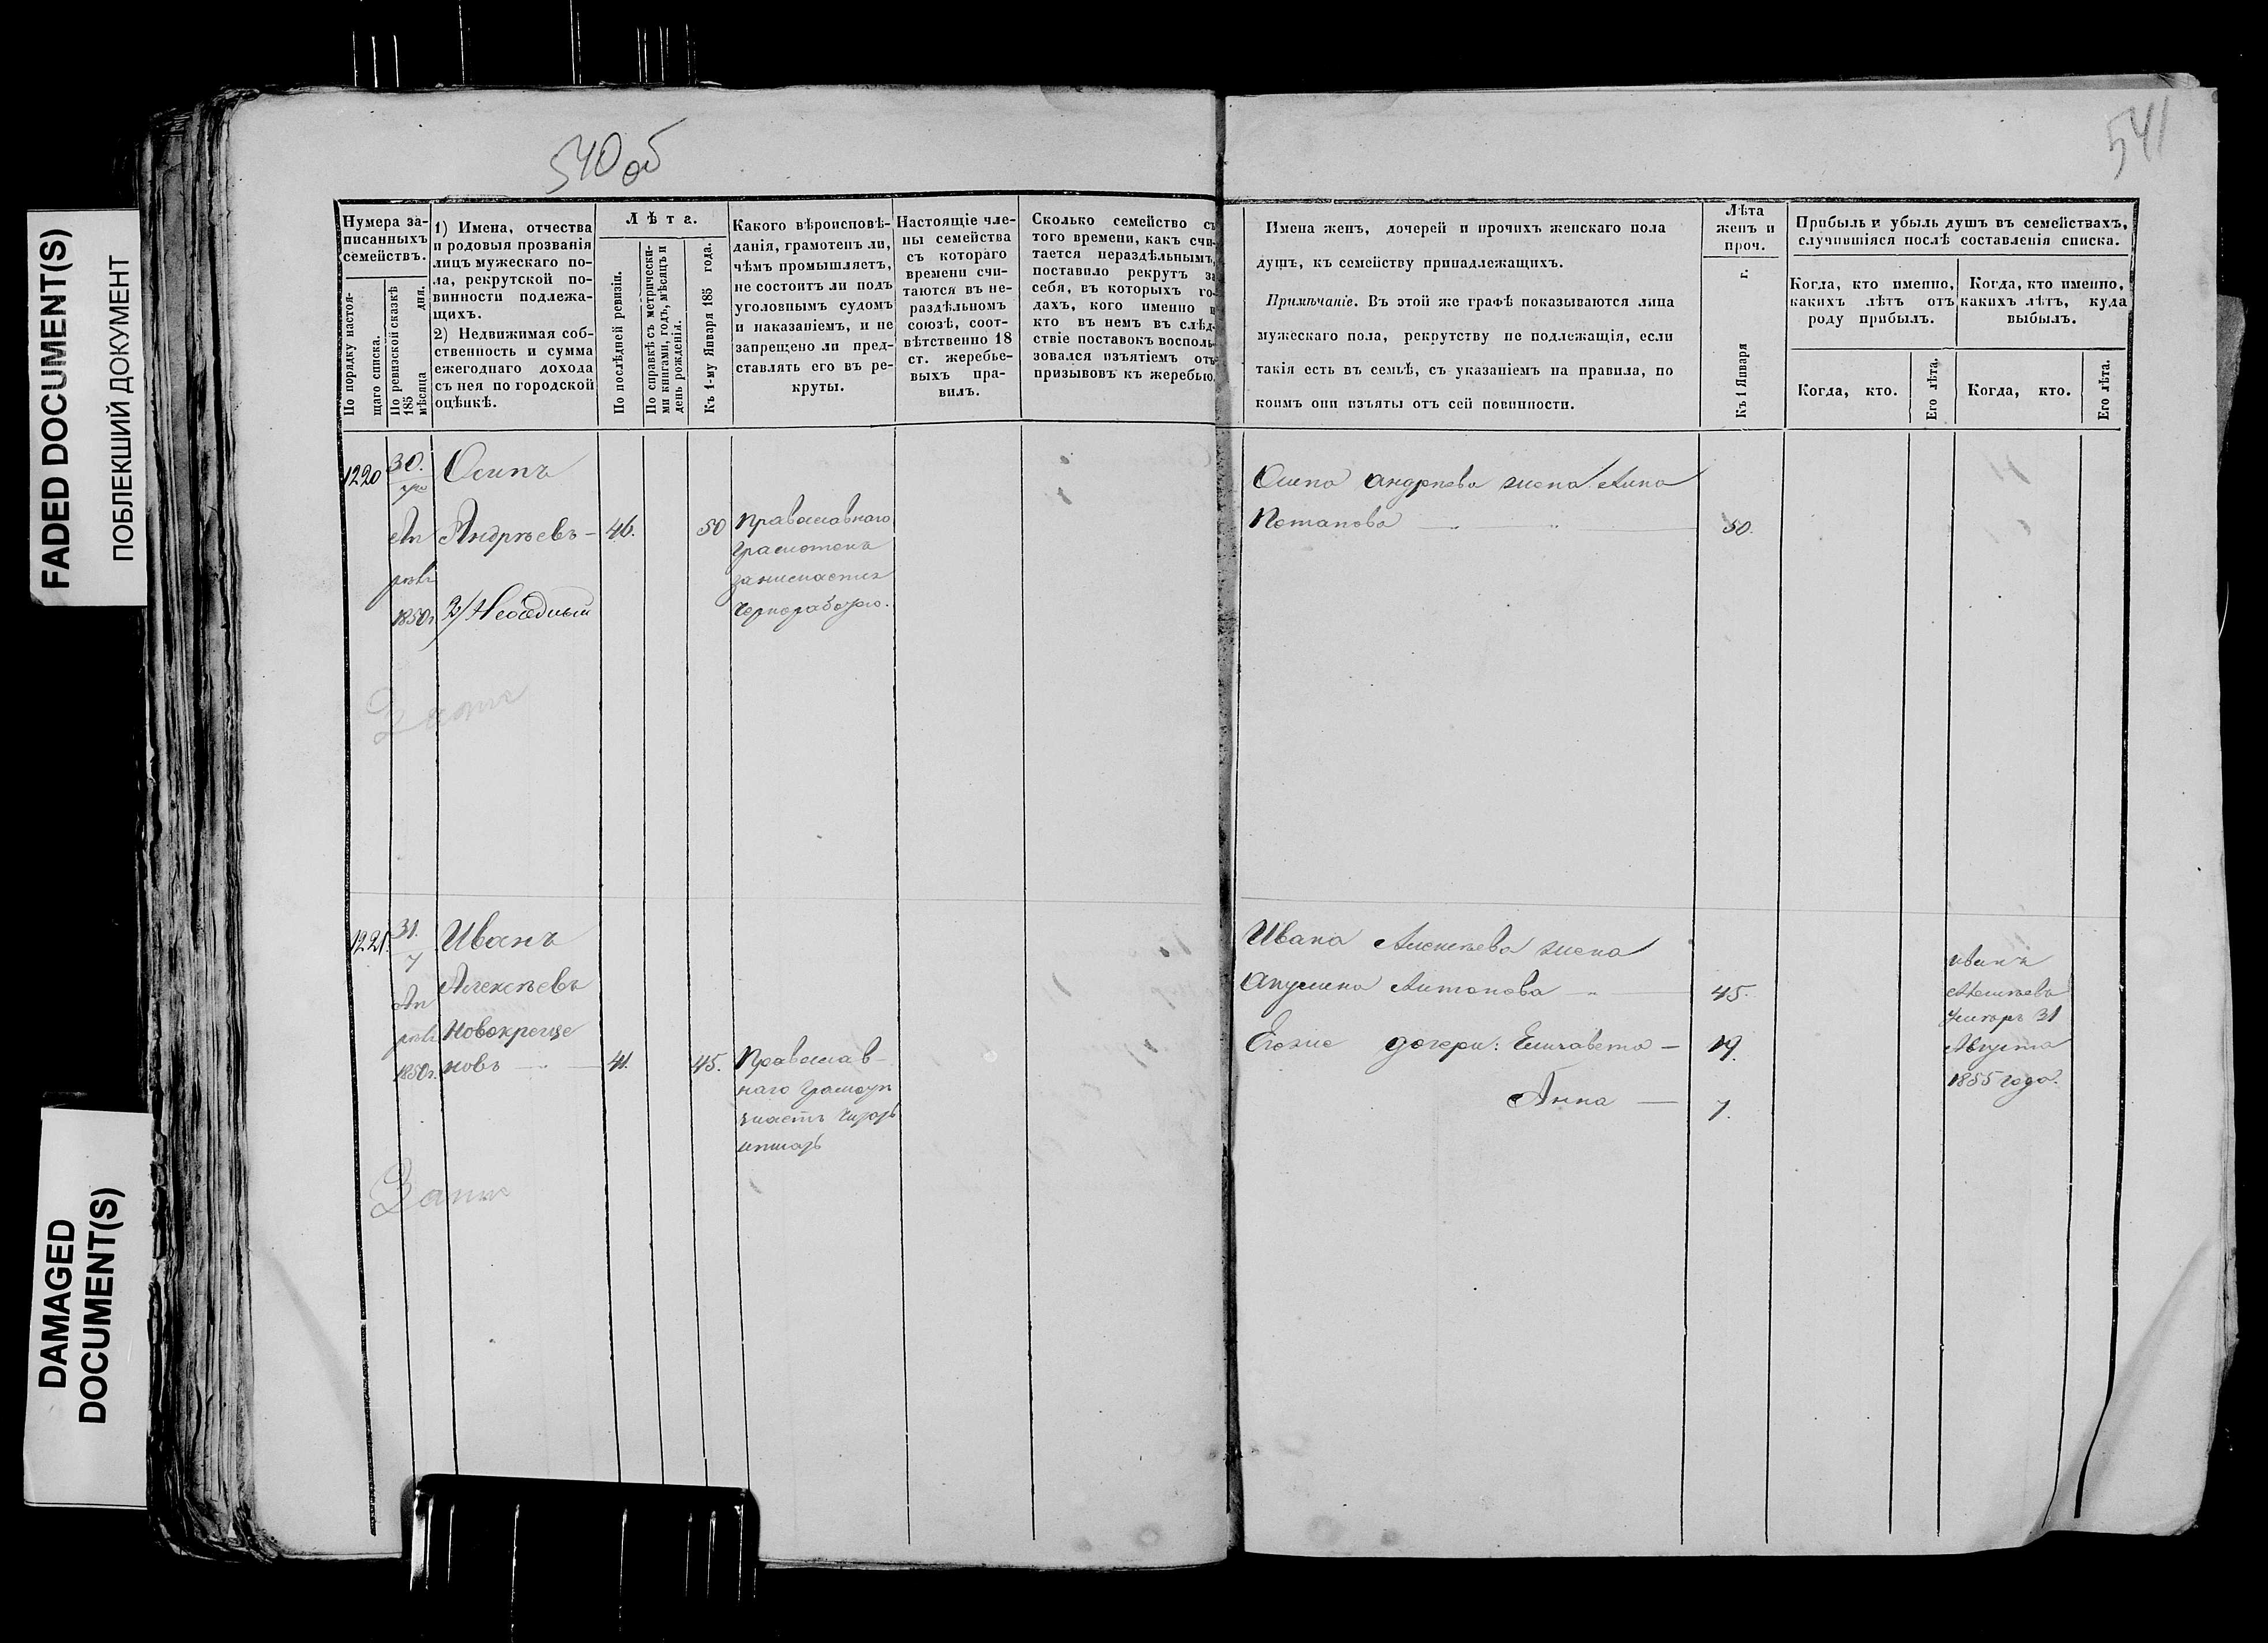 FADED DOCUMENT(S)
ПОБЛЕКШИЙ ДОКУМЕНТ
DAMAGED
DOCUMENT(S)
540 об
Нумера за-
писанныхъ
семействъ.
По порядку настоя-
щаго списка.
По ревизской сказкѣ
185 дня.
мѣсяца
1) Имена, отчества
и родовыя прозванія
лицъ мужескаго по-
ла, рекрутской по-
винности подлежа-
щихъ.
2) Недвижимая соб-
ственность и сумма
ежегоднаго дохода
съ нея по городской
оцѣнкѣ.
Лѣта.
По послѣдней ревизіи.
По справкѣ съ метрически-
ми книгами, годъ, мѣсяцъ и
день рожденія.
Къ 1-му Января 185 года.
Какого вѣроисповѣ-
данія, грамотенъ ли,
чѣмъ промышляетъ,
не состоитъ ли подъ
уголовнымъ судомъ
и наказаніемъ, и не
запрещено ли пред-
ставлять его въ ре-
круты.
Настоящіе чле-
ны семейства
съ котораго
времени счи-
таются въ не-
раздѣльномъ
союзѣ, соот-
вѣтственно 18
ст. жеребье-
выхъ пра-
вилъ.
Сколько семейство съ
того времени, какъ счи-
тается нераздѣльнымъ,
поставило рекрутъ за
себя, въ которыхъ го-
дахъ, кого именно и
кто въ немъ въ слѣд-
ствіе поставокъ восполь-
зовался изъятіемъ отъ
призывовъ къ жеребью.
1220
30.
Ап
рѣля
1850г.
Осипъ
Андреевъ —
2/ Неоседлый
46.
50
Православнаго
Грамотенъ
занимается
Чернорабочею.
1221.
31.
7
Ап
рѣля
1850г.
Иванъ
Алексѣевъ
Новокреще
новъ —
41.
45.
Православ
наго
541
Имена женъ, дочерей и прочихъ женскаго пола
душъ, къ семейству принадлежащихъ.
Примѣчаніе. Въ этой же графѣ показываются лица
мужескаго пола, рекрутству не подлежащія, если
такія есть въ семьѣ, съ указаніемъ на правила, по
коимъ они изъяты отъ сей повинности.
Лѣта
женъ и
проч.
Къ 1 Января г.
Прибыль и убыль душъ въ семействахъ,
случившіяся послѣ составленія списка.
Когда, кто именно,
какихъ лѣтъ отъ
роду прибылъ.
Когда, кто именно,
какихъ лѣтъ, куда
выбылъ.
Когда, кто.
Его лѣта.
Когда, кто.
Его лѣта.
Осипа Андреева жена Анна
Потапова —
50.
Ивана Алексѣева жена
Акулина Антонова —
45.
Егоже дочери: Елизавета —
19.
Анна —
7.
Иванъ
Алексѣевъ
Умеръ 31
Августа
1855 года.